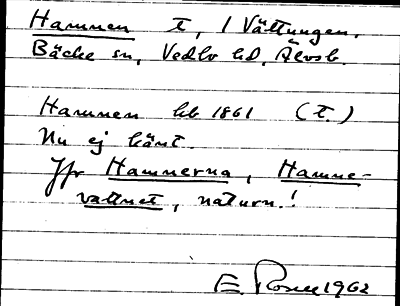 Hamnen t, 1 Vättungen,
Bäcke sn, Vedbo hd, Älvsb.
Hamnen hb 1861 (t.)
Nu ej känt.
Jfr Hamnerna, Hamne-
vattnet, naturn.!
E. Rosell 1962